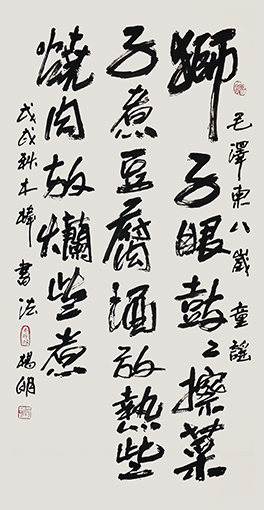 毛澤東八歲童謠
獅子眼鼓〻擦菜
子煮豆腐酒放熱些
燒肉放爛些煮
戊戌秋木 書法 楊明